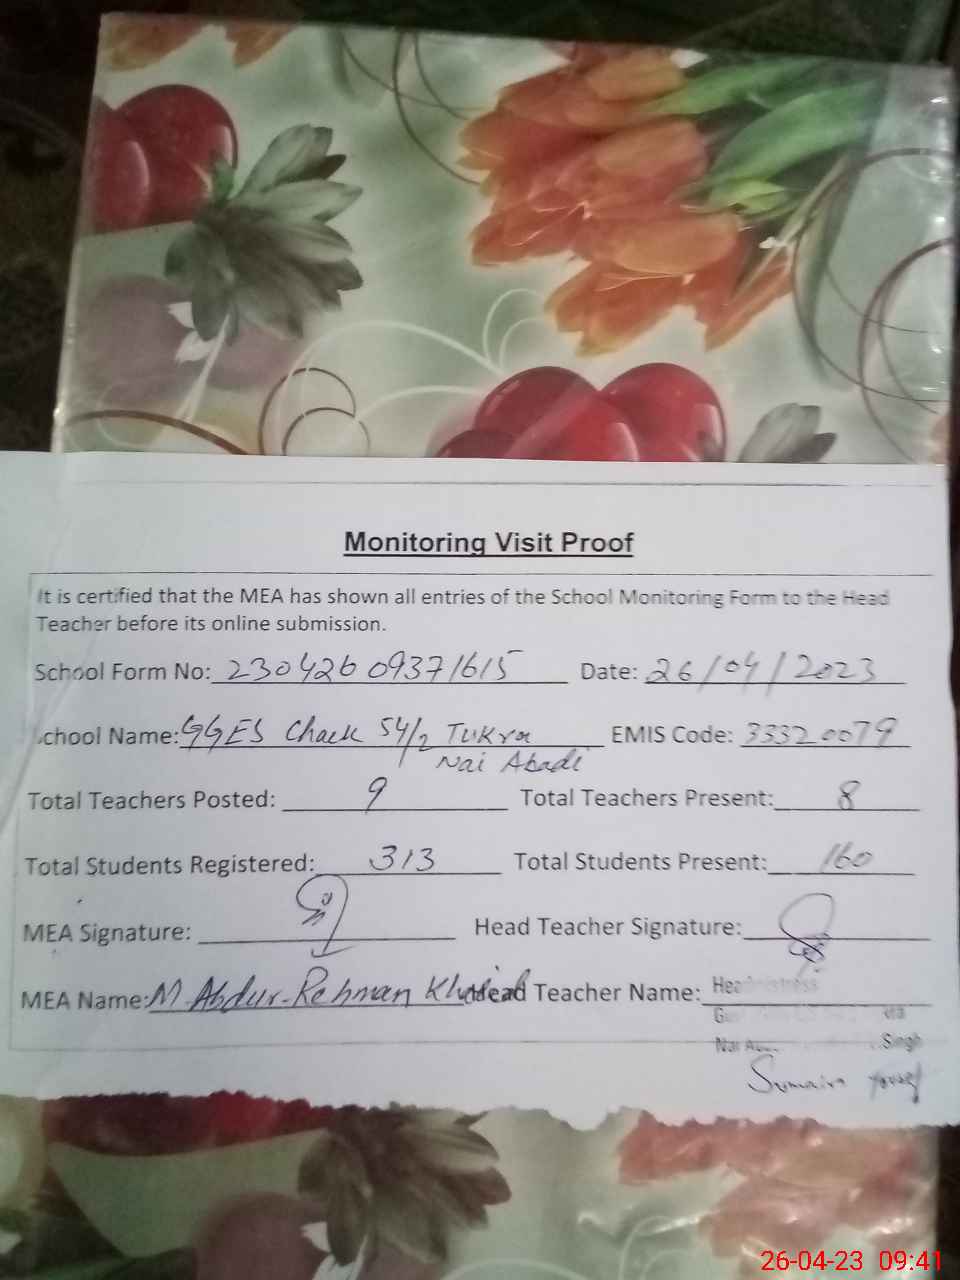 Monitoring Visit Proof
It is certified that the MEA has shown all entries of the School Monitoring Form to the Head
Teacher before its online submission.
School Form No: 23042609371615 Date: 26/04/2023
School Name: GGES Chack 54/2 Tukra EMIS Code: 33320079
Nai Abadi
Total Teachers Posted: 9 Total Teachers Present: 8
Total Students Registered: 313 Total Students Present: 160
MEA Signature: Head Teacher Signature:
MEA Name: M. Abdur-Rehman Khalid Head Teacher Name: Headmistress
Nai Singh
Sumaira Yousaf
26-04-23 09:41